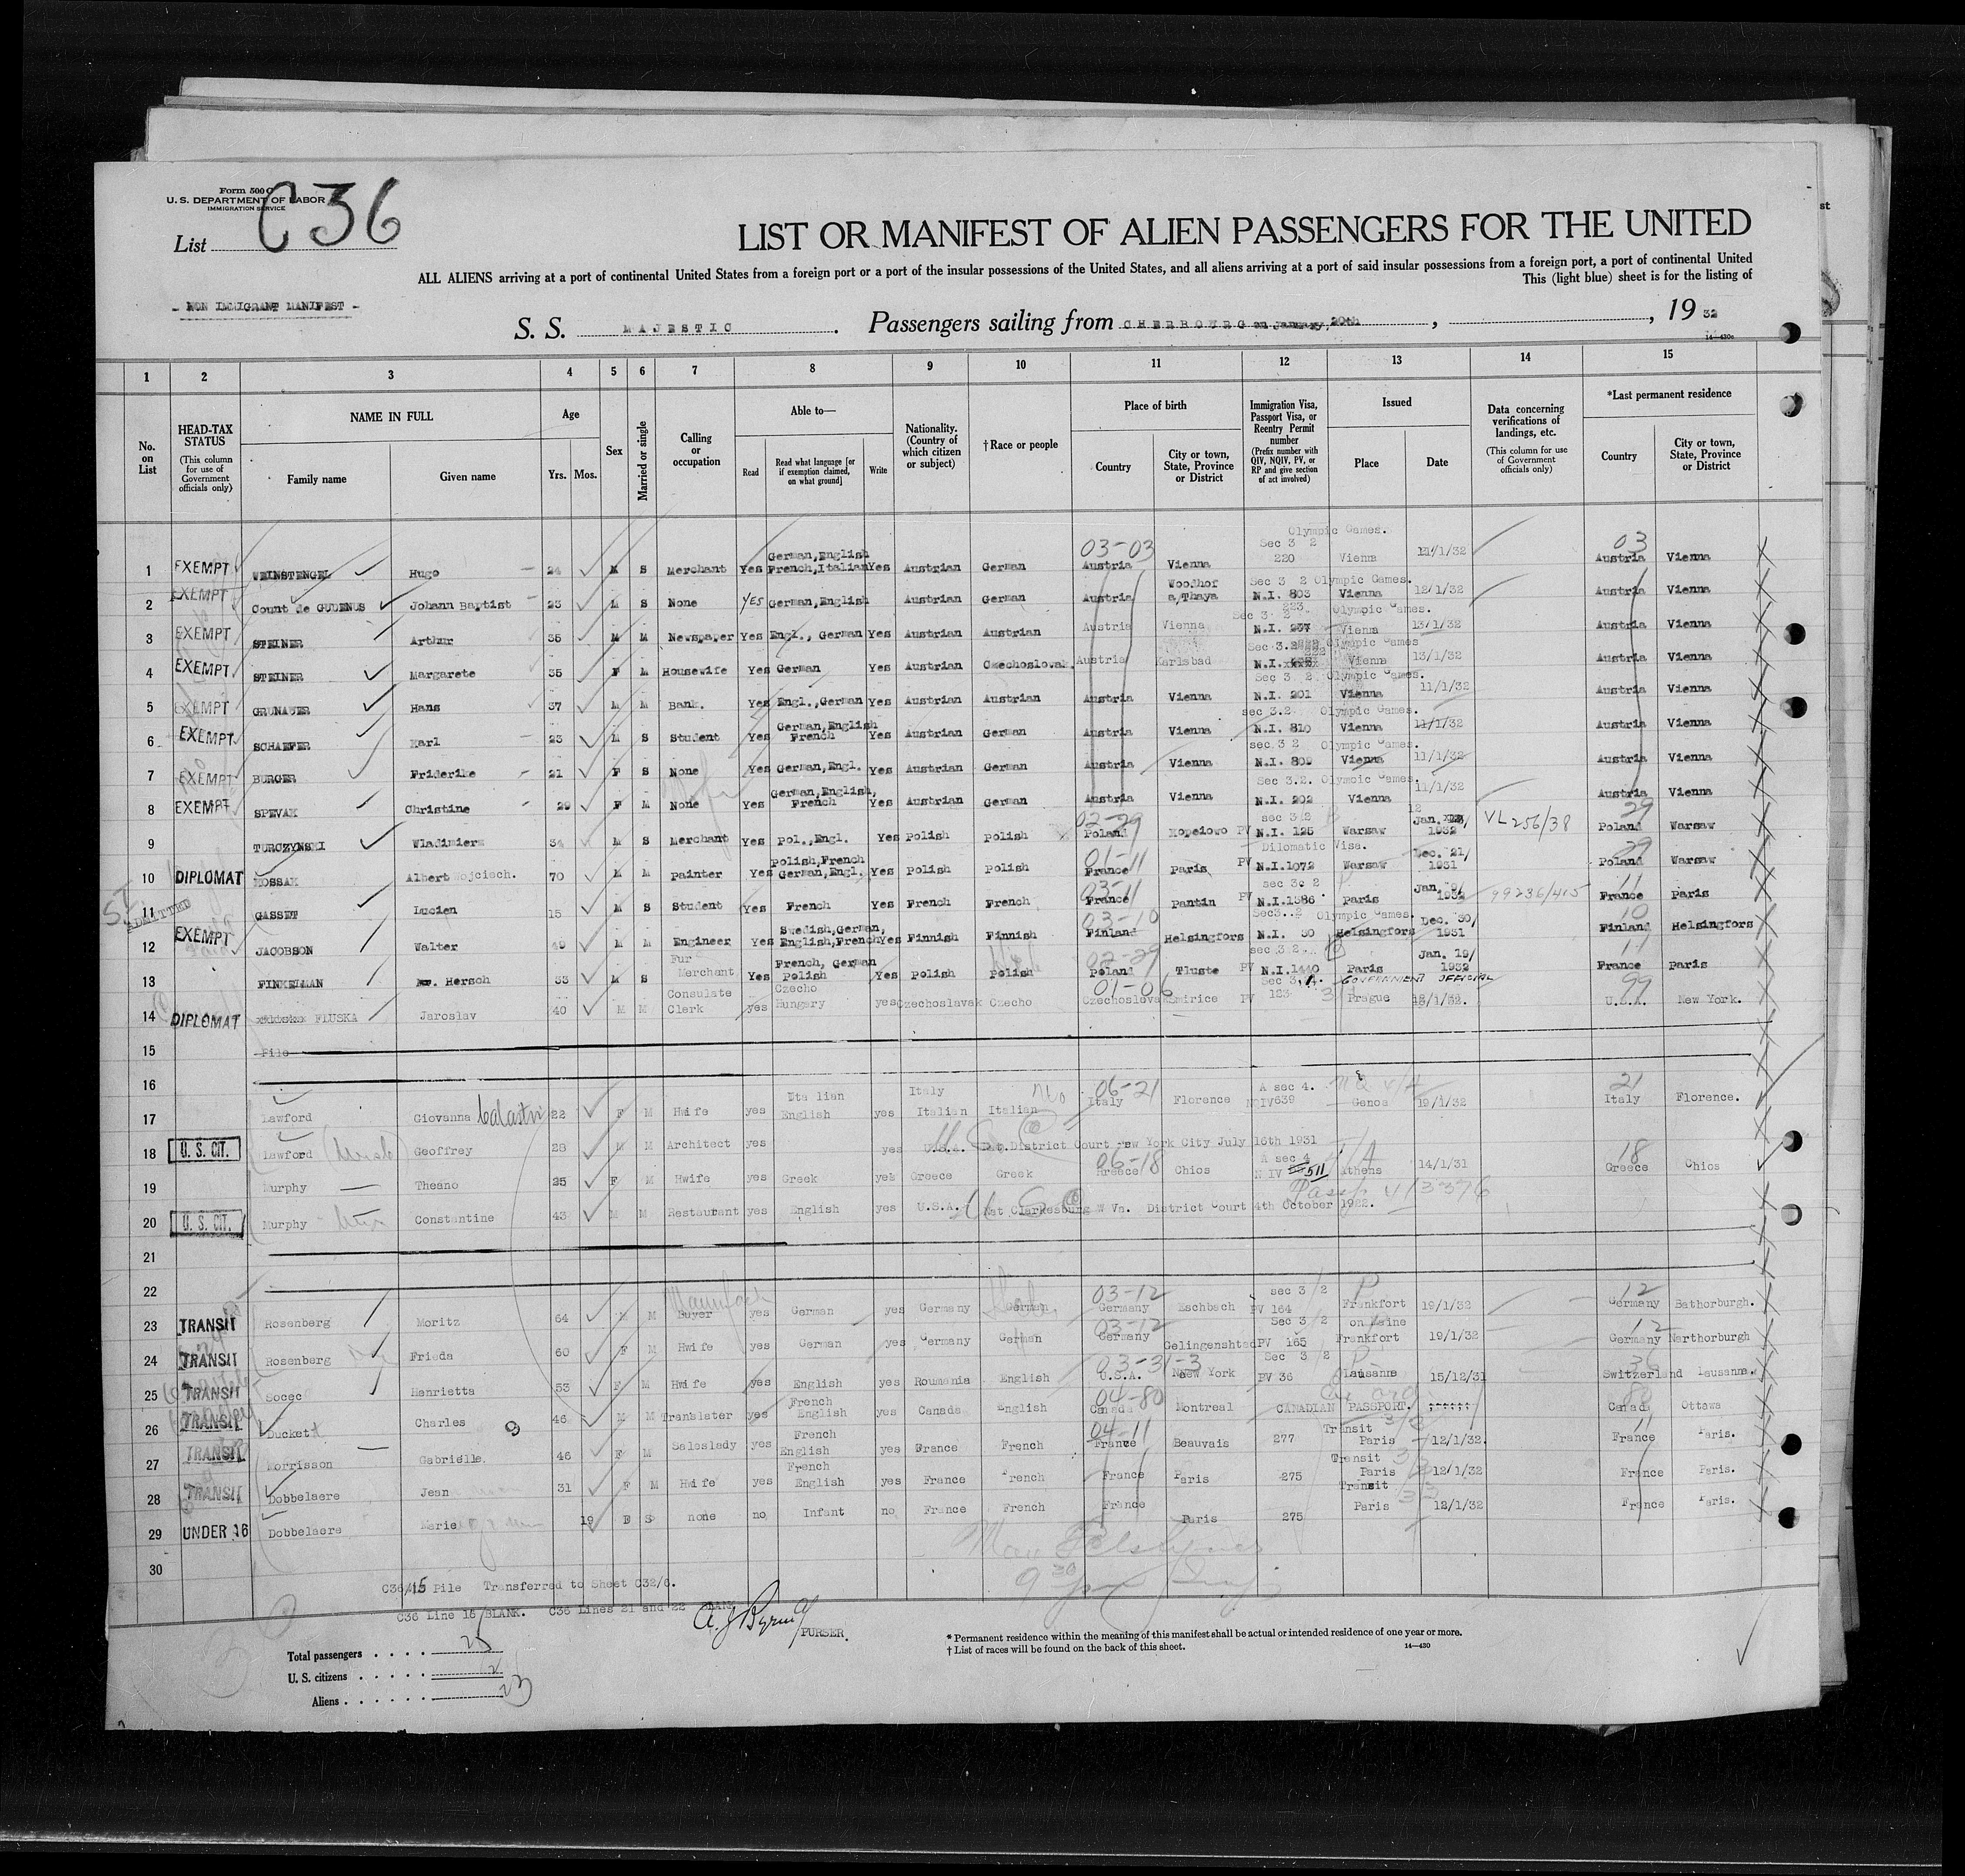 Form 500 C
U. S. DEPARTMENT OF LABOR
IMMIGRATION SERVICE
List C36
LIST OR MANIFEST OF ALIEN PASSENGERS FOR THE UNITED
ALL ALIENS arriving at a port of continental United States from a foreign port or a port of the insular possessions of the United States, and all aliens arriving at a port of said insular possessions from a foreign port, a port of continental United
This (light blue) sheet is for the listing of
- NON IMMIGRANT MANIFEST -
S. S. MAJESTIC. Passengers sailing from CHERBOURG on January, 20th, , 19 32
14—430c
1 2 3 4 5 6 7 8 9 10 11 12 13 14 15
No. on List
HEAD-TAX STATUS (This column for use of Government officials only)
NAME IN FULL
Family name Given name
Age
Yrs. Mos.
Sex
Married or single
Calling or occupation
Able to—
Read Read what language [or if exemption claimed, on what ground] Write
Nationality. (Country of which citizen or subject)
† Race or people
Place of birth
Country City or town, State, Province or District
Immigration Visa, Passport Visa, or Reentry Permit number (Prefix number with QIV, NQIV, PV, or RP and give section of act involved)
Issued
Place Date
Data concerning verifications of landings, etc. (This column for use of Government officials only)
*Last permanent residence
Country City or town, State, Province or District
1 EXEMPT WEINSTENGEL Hugo 24 M S Merchant Yes German,English French,Italian Yes Austrian German 03-03 Austria Vienna Olympic Games. Sec 3 2 220 Vienna 11/1/32 03 Austria Vienna
2 EXEMPT Count de GUDENUS Johann Baptist 23 M S None YES German,English Austrian German Austria Woodhof a,Thaya Sec 3 2 Olympic Games. N.I. 803 Vienna 12/1/32 Austria Vienna
3 EXEMPT STEINER Arthur 35 M M Newspaper Yes Engl., German Yes Austrian Austrian Austria Vienna Sec 3 2 223 Olympic Games. N.I. 237 Vienna 13/1/32 Austria Vienna
4 EXEMPT STEINER Margarete 35 F M Housewife Yes German Yes Austrian Czechoslovak. Austria Karlsbad Sec 3.2 Olympic Games N.I. Vienna 13/1/32 Austria Vienna
5 EXEMPT GRUNAUER Hans 37 M M Bank. Yes Engl.,German Yes Austrian Austrian Austria Vienna Sec 3 2 Olympic Games. N.I. 201 Vienna 11/1/32 Austria Vienna
6 EXEMPT SCHAEFER Karl 23 M S Student Yes German,English French Yes Austrian German Austria Vienna sec 3.2 Olympic Games. N.I. 810 Vienna 11/1/32 Austria Vienna
7 EXEMPT BURGER Friderike 21 F S None Yes German,Engl. Yes Austrian German Austria Vienna sec.3 2 Olympic Games. N.I. 809 Vienna 11/1/32 Austria Vienna
8 EXEMPT SPEVAK Christine 29 F M None Yes German,English, French Yes Austrian German Austria Vienna Sec 3.2. Olympic Games. N.I. 202 Vienna 11/1/32 Austria Vienna
9 TURCZYNSKI Wladimierz 34 M S Merchant Yes Pol.,Engl. Yes Polish Polish 02-29 Poland Kopeiowo PV sec 3 2 N.I. 125 Warsaw Jan. 12 1932 VL 256/38 29 Poland Warsaw
10 DIPLOMAT KOSSAK Albert Wojciech. 70 M M painter Yes Polish,French German,Engl. Yes Polish Polish 01-11 France Paris PV Dilomatic Visa. N.I.1072 Warsaw Dec. 21/ 1931 29 Poland Warsaw
11 SI ADMITTED GASSET Lucien 15 M S Student Yes French Yes French French 03-11 France Pantin PV sec 3 2 N.I.1586 Paris Jan. 9/ 1932 99236/415 11 France Paris
12 EXEMPT JACOBSON Walter 49 M M Engineer Yes Swedish,German, English,French Yes Finnish Finnish 03-10 Finland Helsingfors Sec3..2 Olympic Games. N.I. 30 Helsingfors Dec. 30/ 1931 10 Finland Helsingfors
13 FINKELMAN Hersch 33 M S Fur Merchant Yes French, German Polish Yes Polish Polish 02-29 Poland Tluste PV sec 3 2. N.I.1440 Paris Jan. 19/ 1932 11 France Paris
14 DIPLOMAT FLUSKA Jaroslav 40 M M Consulate Clerk yes Czecho Hungary yes Czechoslovak Czecho 01-06 Czechoslovak Smirice PV Sec 3,1. 123 GOVERNMENT OFFICIAL Prague 18/1/32. 99 U.S.A. New York.
15 Pile
16
17 Lawford Giovanna Calastri 22 F M Hwife yes Italian English yes Italy Italian Italian 06-21 Italy Florence A sec 4. NQIV 639 Genoa 19/1/32 21 Italy Florence.
18 U. S. CIT. Lawford Geoffrey 28 M M Architect yes yes U.S.A. Nat.District Court New York City July 16th 1931
19 Murphy Theano 25 F M Hwife yes Greek yes Greece Greek 06-18 Greece Chios A sec 4 N IV 511 Athens 14/1/31 18 Greece Chios
20 U. S. CIT. Murphy Constantine 43 M M Restaurant yes English yes U.S.A. Nat Clarkesburg W Va. District Court 4th October 1922.
21
22
23 TRANSIT Rosenberg Moritz 64 M M Buyer yes German yes Germany German 03-12 Germany Eschbach sec 3 2 PV 164 Frankfort on Maine 19/1/32 12 Germany Bathorburgh.
24 TRANSIT Rosenberg Frieda 60 F M Hwife yes German yes Germany German 03-12 Germany Gelingenshted Sec 3 2 PV 165 Frankfort 19/1/32 12 Germany Narthorburgh
25 TRANSIT Socec Henrietta 53 F M Hwife yes English yes Roumania English 03-31-3 U.S.A. New York Sec 3 2 PV 36 Lausanne 15/12/31 36 Switzerland lausanne.
26 TRANSIT Duckett Charles 46 M M Translater yes French English yes Canada English 04-80 Canada Montreal CANADIAN PASSPORT. 80 Canada Ottawa
27 TRANSIT Morrisson Gabrielle 46 F M Saleslady yes French English yes France French 04-11 France Beauvais 277 Transit Paris 12/1/32. 11 France Paris.
28 TRANSIT Dobbelaere Jean 31 F M Hwife yes French English yes France French France Paris 275 Transit Paris 12/1/32 France Paris.
29 UNDER 16 Dobbelaere Marie 19 F S none no Infant no France French France Paris 275 Transit Paris 12/1/32 France Paris.
30
C36/15 Pile Transferred to Sheet C32/6.
C36 Line 16 BLANK. C36 Lines 21 and 22 BLANK
PURSER.
Total passengers . . . . 25
U. S. citizens . . . . . 2
Aliens . . . . . . 23
* Permanent residence within the meaning of this manifest shall be actual or intended residence of one year or more.
† List of races will be found on the back of this sheet.
14—430